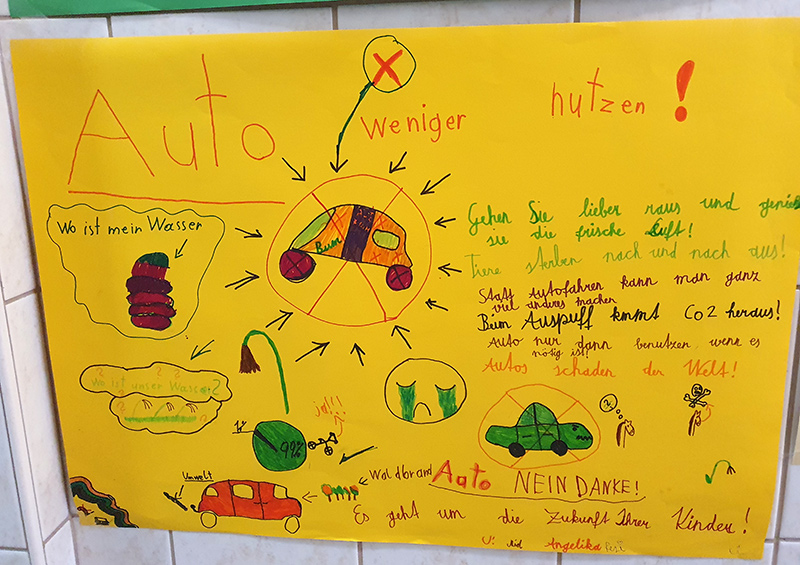 Auto weniger nutzen!
Wo ist mein Wasser
Bum
Gehen Sie lieber raus und
sie die frische Luft!
Tiere sterben nach und nach aus!
Statt Autofahren kann man ganz
viel anderes machen
Beim Auspuff kmmt Co2 heraus!
Auto nur dann benutzen wenn es
nötig ist!
Autos schaden der Welt!
Wo ist unser Wasser?
ja!!!
1%
99%
Umwelt
Waldbrand
Auto NEIN DANKE!
Es geht um die Zukunft Ihrer Kinder!
Angelika